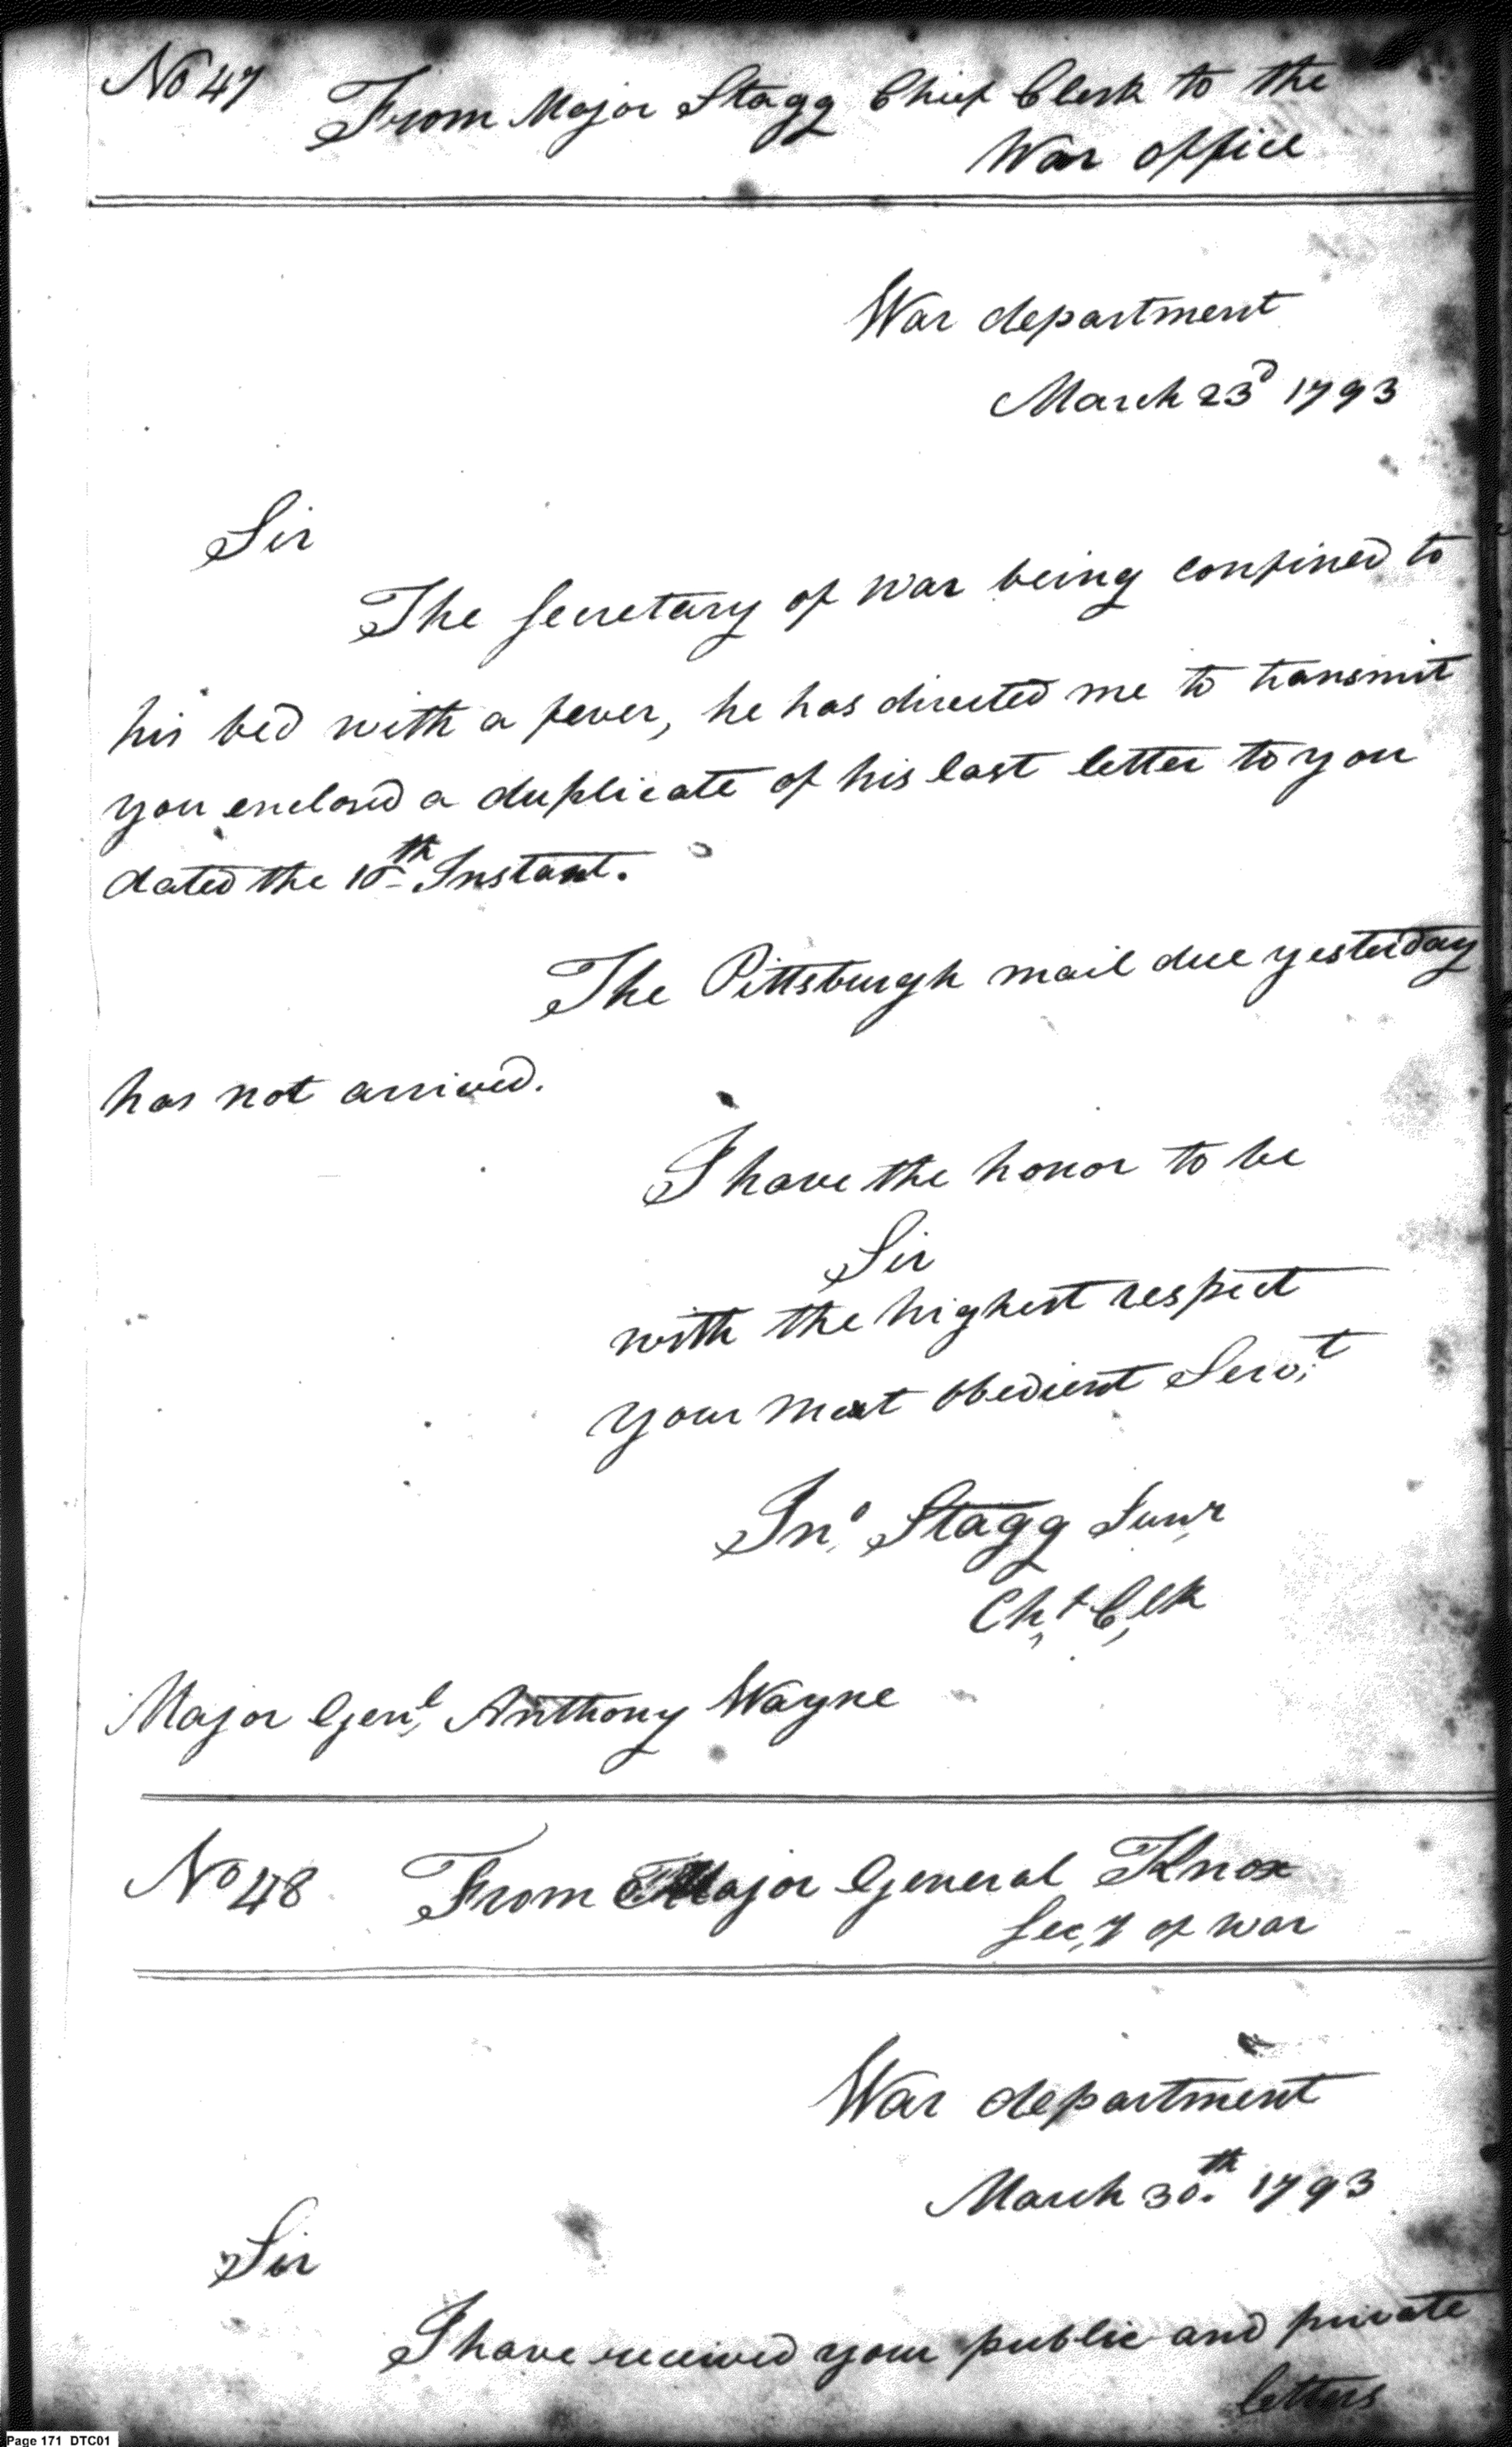 No 47 From Major Stagg Chief Clerk to the
War office
War department
March 23d 1793
Sir
The Secretary of war being confined to
his bed with a fever, he has directed me to transmit
you enclosed a duplicate of his last letter to you
dated the 10th Instant.
The Pittsburgh mail due yesterday
has not arrived.
I have the honor to be
Sir
with the highest respect
your most obedient Servt
Jno Stagg Junr
Chf Clk
Major Genl Anthony Wayne
No 48 From Major General Knox
Secy of war
War department
March 30th 1793
Sir
I have received your public and private
letters
Page 171 DTC01